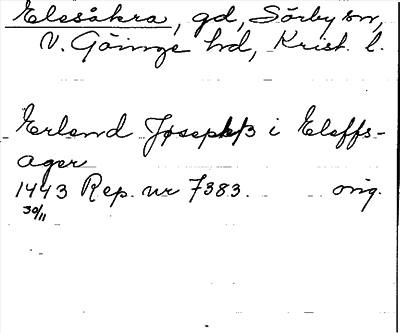 Elesåkra, gd, Sörby sn,
V. Göinge hd, Krist. l.
Erlend Jøseps/s i Eleffs-
ager
1443 Rep. nr 7383. orig.
30/11